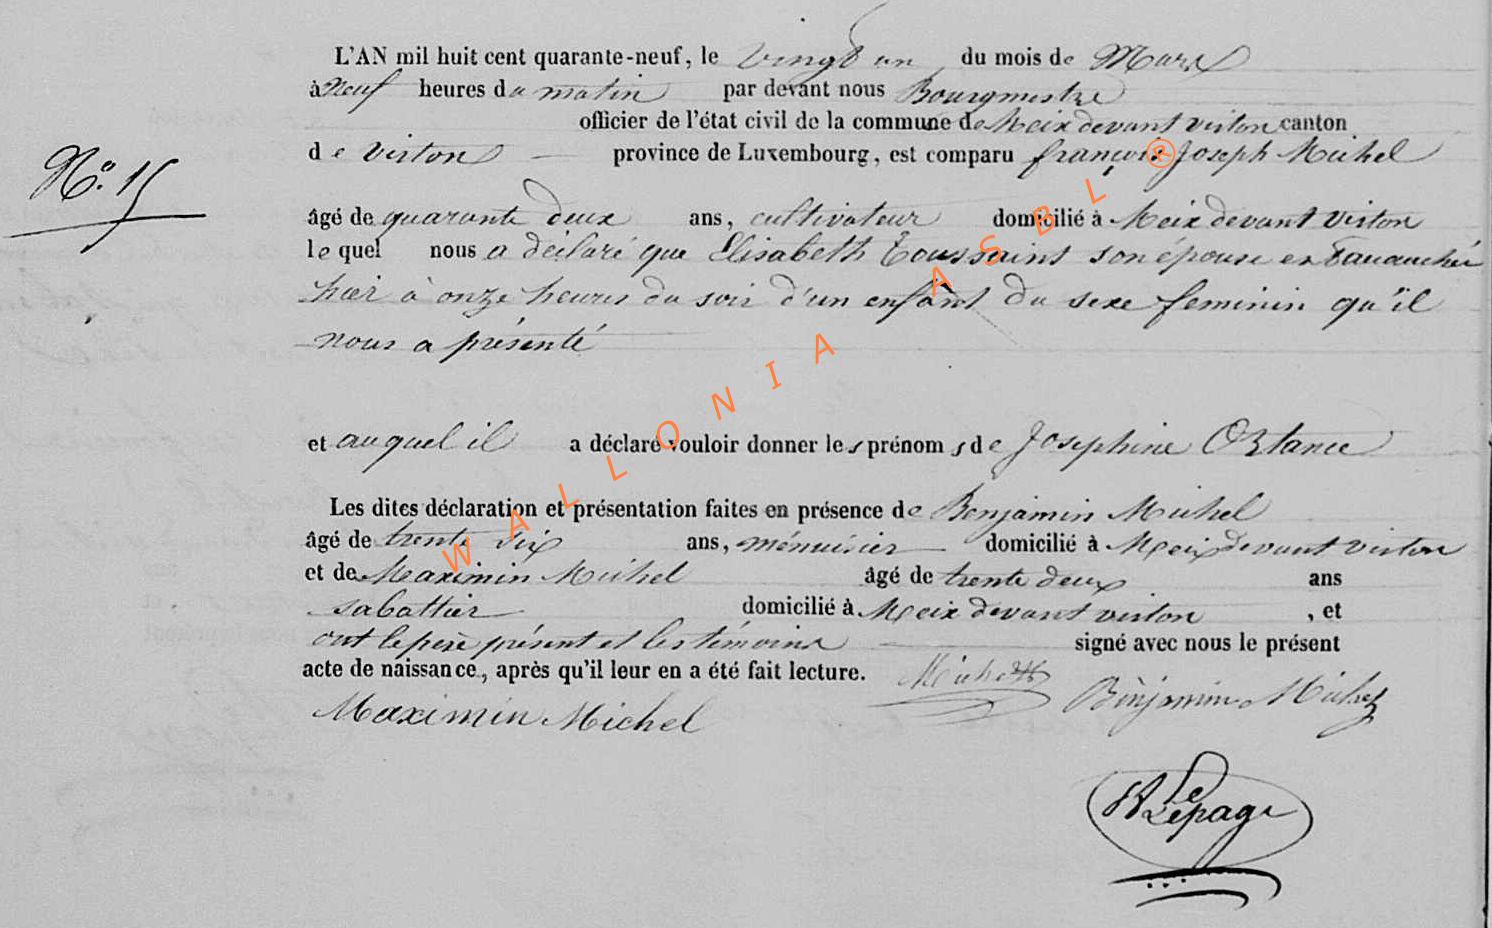 L'AN mil huit cent quarante-neuf, le vingt un du mois de Mars
à neuf heures du matin par devant nous Bourgmestre
officier de l'état civil de la commune de Meix devant virton canton
de virton province de Luxembourg, est comparu françois Joseph Michel
N.º 15
âgé de quarante deux ans, cultivateur domicilié à Meix devant virton
lequel nous a déclaré que Elisabeth Toussaint son épouse est
hier à onze heures du soir d'un enfant du sexe feminin qu'il
nous a présenté
et auquel il a déclaré vouloir donner les prénoms de Josephine Oztance
Les dites déclaration et présentation faites en présence de Benjamin Michel
âgé de trente six ans, ménuisier domicilié à Meix devant virton
et de Maximin Michel âgé de trente deux ans
sabattier domicilié à Meix devant virton, et
ont le père présent et les témoins signé avec nous le présent
acte de naissance, après qu'il leur en a été fait lecture.
Maximin Michel Benjamin Michel
Lepage
WALLONIA ASBL ®